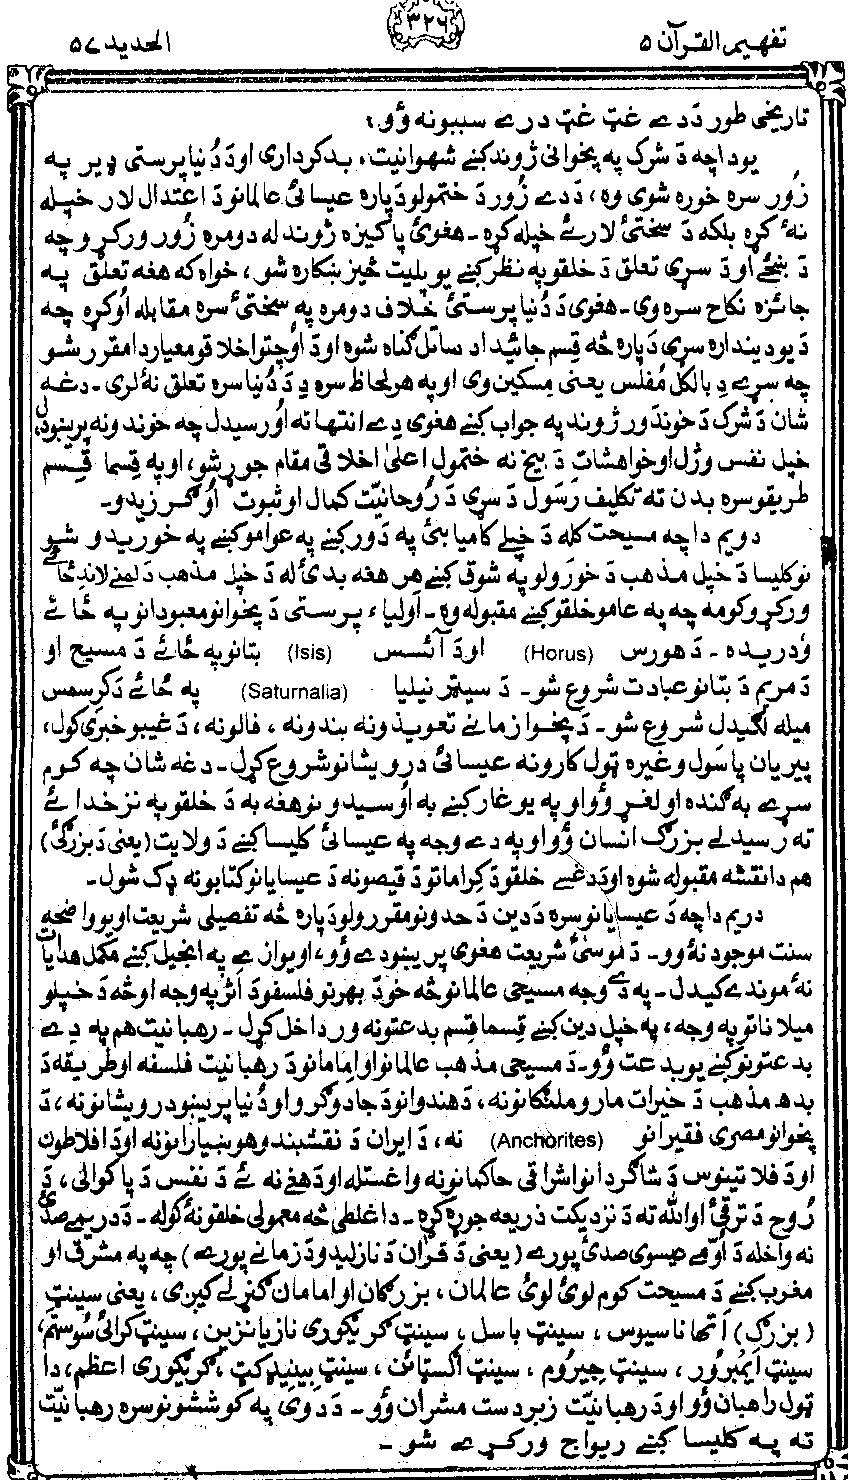 تفهیم القرآن ۵
۳۲۶
الحدید ۵۷
تاریخی طور ددے غټ غټ درے سببونه وُو :
یو داچه دَ شرک په پخوانی ژوند کښے شهوانیت، بدکرداری اودَ دُنیا پرستی ډیر په
زُور سره خوره شوی وه، ددے زُور دَ ختمولو دَپاره عیسائی عالمانو دَ اعتدال لار خپله
نهٔ کړه بلکه دَ سختیٔ لارئے خپله کړه۔ هغویٔ پاکیزه ژوند له دومره زُور ورکړو چه
دَ ښځے اودَ سړی تعلق دَ خلقو په نظر کښے یو پلیت څیز ښکاره شو، خواه که هغه تعلق په
جائزه نکاح سره وی۔ هغوی دَ دُنیا پرستیٔ خلاف دومره په سختیٔ سره مقابله اُوکړه چه
دَ یو دینداره سړی دَپاره څه قسم جائیداد ساتل گناه شوه اودَ اُوچتو اخلاقو معیار دا مقرر شو
چه سړے دِ بالکل مُفلس یعنی مِسکین وی او په هر لحاظ سره دِ دَ دُنیا سره تعلق نهٔ لری۔ دغه
شان دَ شرک دَ خوندَور ژوند په جواب کښے هغوی دے انتها ته اُورسیدل چه خوندونه پریښودل،
خپل نفس وژل او خواهشات دَ بیخ نه ختمول اعلیٰ اخلاقی مقام جوړ شو، او په قسما قسم
طریقو سره بدن ته تکلیف رَسول دَ سړی دَ رُوحانیّت کمال او ثبوت اُوگرزیدو۔
دویم داچه مسیحت کله دَ خپلے کامیابیٔ په دَور کښے په عوامو کښے په خوریدو شو
نو کلیسا دَ خپل مذهب دَ خورَولو په شوق کښے هر هغه بدیٔ له دَ خپل مذهب دَ لمنے لاندِ ځائے
ورکړو کومه چه په عامو خلقو کښے مقبوله وه۔ اولیاء پرستی دَ پخوانو معبودانو په ځائے
ودریده۔ دَ هورس (Horus) اودَ آئسس (Isis) بتانو په ځائے دَ مسیح او
دَ مریم دَ بتانو عبادت شروع شو۔ دَ سیټر نیلیا (Saturnalia) په ځائے دَ کرسمس
میله لگیدل شروع شو۔ دَ پخوا زمانے تعویذونه بندونه، فالونه، دَ غیبو خبری کول،
پیریان پاسَول وغیره ټول کارونه عیسائی درویشانو شروع کړل۔ دغه شان چه کوم
سړے به گنده او لغړ وُو او په یو غار کښے به اُوسیدو نو هغه به دَ خلقو په نزد خدائے
ته رَسیدلے بزرگ انسان وُو او په دے وجه په عیسائی کلیسا کښے دَ ولایت (یعنی دَ بزرگیٔ)
هم دا نقشه مقبوله شوه اودَ دغسے خلقو دَ کراماتو دَ قیصو نه دَ عیسایانو کتابونه ډک شول۔
دریم داچه دَ عیسایانو سره دَ دین دَ حدونو مقررولو دَپاره څه تفصیلی شریعت او یو واضحه
سنت موجود نهٔ وو۔ دَ موسیٰ شریعت هغوی پریښودے وُو، او یوازے په انجیل کښے مکمل هدایات
نهٔ موندے کیدل۔ په دے وجه مسیحی عالمانو څه خو دَ بهرنو فلسفو دَ اثر په وجه او څه دَ خپلو
میلاناتو په وجه، په خپل دین کښے قسما قسم بدعتونه ور داخل کړل۔ رهبانیت هم په دے
بدعتونو کښے یو بدعت وُو۔ دَ مسیحی مذهب عالمانو او امامانو دَ رهبانیت فلسفه او طریقه دَ
بدهـ مذهب دَ خیرات مارو ملنگانو نه، دَ هندوانو دَ جادوگرو او دُنیا پریښودو درویشانو نه، دَ
پخوانو مصری فقیرانو (Anchorites) نه، دَ ایران دَ نقشبندو هوښیارانو نه اودَ افلاطون
اودَ فلاتینوس دَ شاگردانو اشراقی حاکمانو نه واغستله اودَ هغے نه ئے دَ نفس دَ پاکوالی، دَ
رُوح دَ ترقیٔ او الله ته دَ نزدیکت ذریعه جوړه کړه۔ دا غلطی څه معمولی خلقو نهٔ کوله۔ دَ دریمے صدیٔ
نه واخله دَ اُومے عیسوی صدیٔ پورے (یعنی دَ قرآن دَ نازلیدو دَ زمانے پورے) چه په مشرق او
مغرب کښے دَ مسیحت کوم لویٔ لویٔ عالمان، بزرگان او امامان گنړلے کیږی، یعنی سینټ
(بزرگ) اَتهاناسیوس، سینټ باسل، سینټ گریگوری نازیانزین، سینټ کرائی سُوستم،
سینټ ایمبرُوز، سینټ جیرُوم، سینټ اگسټائن، سینټ بینیډکټ، گریگوری اعظم، دا
ټول راهبان وُو اودَ رهبانیّت زبردست مشران وُو۔ دَ دوی په کوششونو سره رهبانیّت
ته په کلیسا کښے رواج ورکړے شو۔